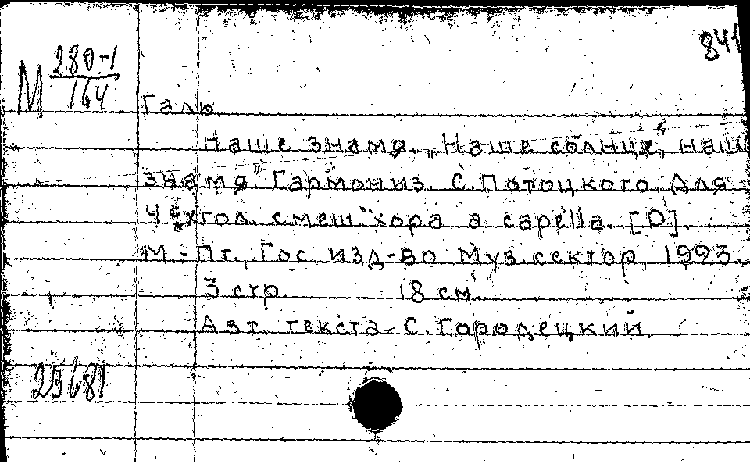 841
М 280-1/164
Галю
Наше знамя. „Наше солнце, наше
знамя" Гармониз. С. Потоцкого. Для
4-ёхгол. смеш. хора a capella. [D].
М.-Пг., Гос. изд-во Муз. сектор, 1923.
3 стр. 18 см.
Авт. текста - С. Городецкий.
25681